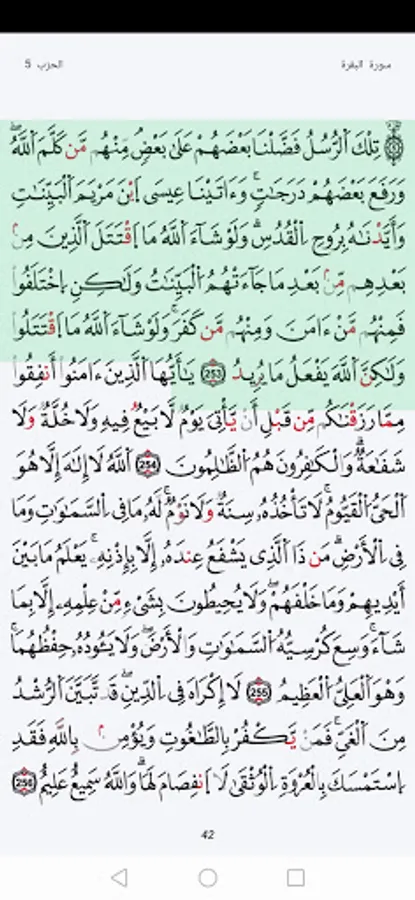 سورة البقرة
الحزب 5
تِلْكَ اَ۬لرُّسُلُ فَضَّلْنَا بَعْضَهُمْ عَلَىٰ بَعْضٖ مِّنْهُم مَّن كَلَّمَ اَ۬للَّهُۖ
وَرَفَعَ بَعْضَهُمْ دَرَجَٰتٖۚ وَءَاتَيْنَا عِيسَى اَ۪بْنَ مَرْيَمَ اَ۬لْبَيِّنَٰتِ
وَأَيَّدْنَٰهُ بِرُوحِ اِ۬لْقُدُسِۗ وَلَوْ شَآءَ اَ۬للَّهُ مَا اَ۪قْتَتَلَ اَ۬لَّذِينَ مِنۢ
بَعْدِهِم مِّنۢ بَعْدِ مَا جَآءَتْهُمُ اُ۬لْبَيِّنَٰتُ وَلَٰكِنِ اِ۪خْتَلَفُواْ
فَمِنْهُم مَّنْ ءَامَنَ وَمِنْهُم مَّن كَفَرَۚ وَلَوْ شَآءَ اَ۬للَّهُ مَا اَ۪قْتَتَلُواْ
وَلَٰكِنَّ اَ۬للَّهَ يَفْعَلُ مَا يُرِيدُ 253 يَٰٓأَيُّهَا اَ۬لَّذِينَ ءَامَنُوٓاْ أَنفِقُواْ
مِمَّا رَزَقْنَٰكُم مِّن قَبْلِ أَنْ يَّأْتِيَ يَوْمٞ لَّا بَيْعٞ فِيهِ وَلَا خُلَّةٞ وَلَا
شَفَٰعَةٞۗ وَالْكَٰفِرُونَ هُمُ اُ۬لظَّٰلِمُونَ 254 اَ۬للَّهُ لَآ إِلَٰهَ إِلَّا هُوَ
اَ۬لْحَيُّ اُ۬لْقَيُّومُۚ لَا تَأْخُذُهُۥ سِنَةٞ وَلَا نَوْمٞۚ لَّهُۥ مَا فِي اِ۬لسَّمَٰوَٰتِ وَمَا
فِي اِ۬لْأَرْضِۗ مَن ذَا اَ۬لَّذِي يَشْفَعُ عِندَهُۥٓ إِلَّا بِإِذْنِهِۦۚ يَعْلَمُ مَا بَيْنَ
أَيْدِيهِمْ وَمَا خَلْفَهُمْۖ وَلَا يُحِيطُونَ بِشَيْءٖ مِّنْ عِلْمِهِۦٓ إِلَّا بِمَا
شَآءَۚ وَسِعَ كُرْسِيُّهُ اُ۬لسَّمَٰوَٰتِ وَالْأَرْضَۖ وَلَا يَـُٔودُهُۥ حِفْظُهُمَاۚ
وَهُوَ اَ۬لْعَلِيُّ اُ۬لْعَظِيمُ 255 لَآ إِكْرَاهَ فِي اِ۬لدِّينِۖ قَد تَّبَيَّنَ اَ۬لرُّشْدُ
مِنَ اَ۬لْغَيِّۚ فَمَنْ يَّكْفُرْ بِالطَّٰغُوتِ وَيُؤْمِنۢ بِاللَّهِ فَقَدِ
اِ۪سْتَمْسَكَ بِالْعُرْوَةِ اِ۬لْوُثْقَىٰ لَا اَ۪نفِصَامَ لَهَاۗ وَاللَّهُ سَمِيعٌ عَلِيمٌ 256
42